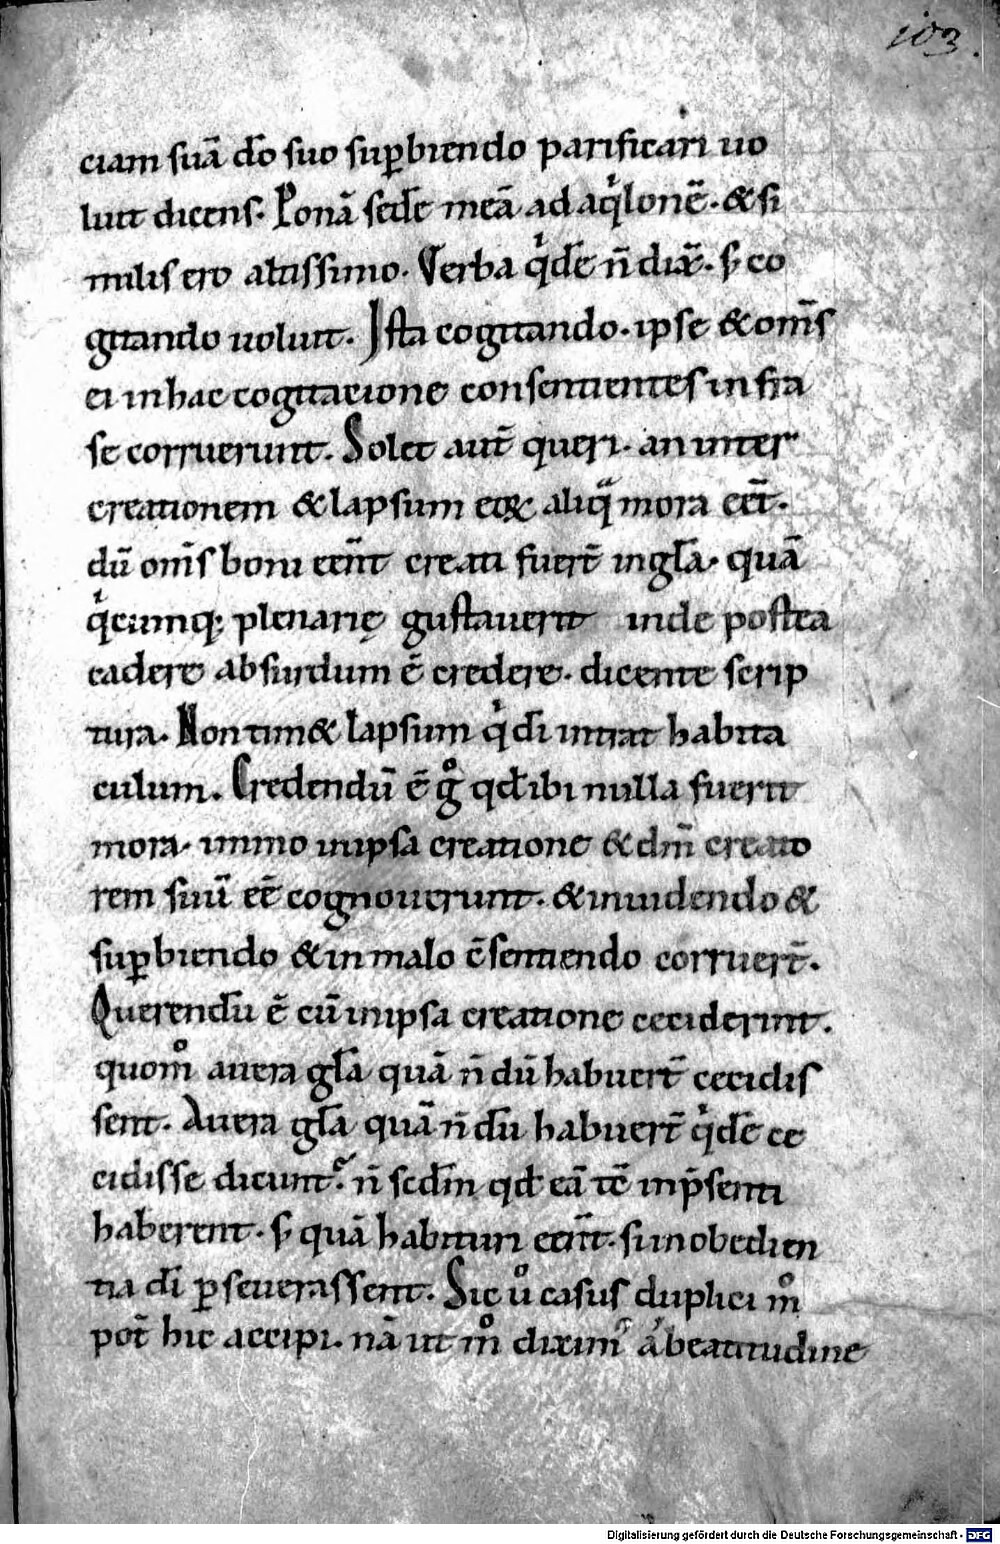 103.
ciam suā dō suo suꝑbiendo parificari uo
luit dicens. Ponā sedē meā ad aqͥlonē. & si
milis ero altissimo. Verba qͥdē n̄ dix̄. sꝫ co
gitando uoluit. Ista cogitando. ipse & om̄s
ei in hac cogitacione consentientes infra
se corruerunt. Solet aut̄ queri. an inter
creationem & lapsum eoꝝ aliqͣ mora eēt.
dū om̄s boni eēnt creati fuer̄t in gl̄a. quā
qͥcumqꝫ plenarię gustauerit inde postea
cadere absurdum ē credere. dicente scrip
tura. Non tim& lapsum qͥ dī intrat habita
culum. Credendū ē gͦ qd̄ ibi nulla fuerit
mora. immo in ipsa creatione & dn̄m creato
rem suū eē cognouerunt. & inuidendo &
suꝑbiendo & in malo c̄sentiendo corruer̄t.
Querendū ē cū in ipsa creatione ceciderint.
quom̊ a uera gl̄a quā n̄dū habuer̄t cecidis
sent. A uera gl̄a quā n̄dū habuer̄t qͥdē ce
cidisse dicunt᷑. n̄ scd̄m qd̄ eā tc̄ in p̄senti
haberent. sꝫ quā habituri eēnt. si in obedien
tia dī ꝑseuerassent. Sic uͦ casus duplici m̊
pot̄ hic accipi. nā ut m̊ diximꝰ a beatitudine
Digitalisierung gefördert durch die Deutsche Forschungsgemeinschaft - DFG